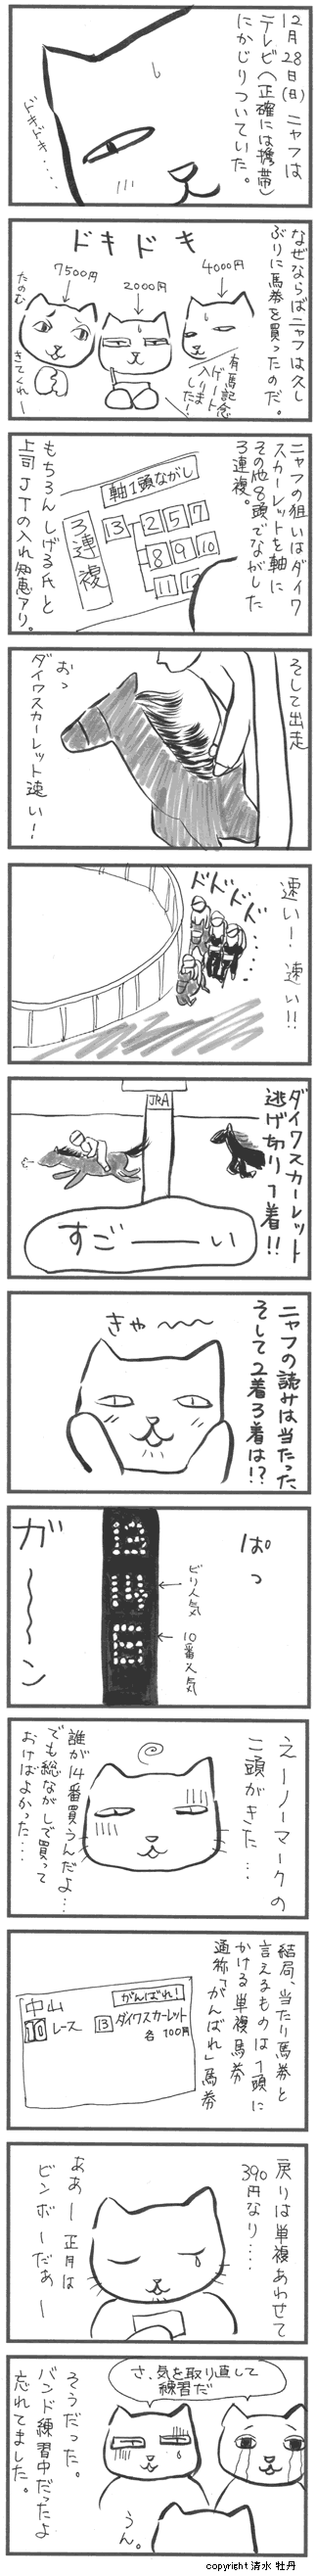 12月28日(日)ニャフは
テレビ(正確には携帯)
にかじりついていた。
ドキドキ・・・・
なぜならばニャフは久し
ぶりに馬券を買ったのだ。
ドキドキ
4000円
2000円
7500円
たのむ
きてくれー
有馬記念
ゲート
入りま
した!
ニャフの狙いはダイワ
スカーレットを軸に
その他8頭でながした
3連複。
軸1頭ながし
3連複
13
2 5 7
8 9 10
11
もちろんしげる氏と
上司JTの入れ知恵アリ。
そして出走
おっ
ダイワスカーレット速い!
速い!速い!!
ドドドド・・・・
ダイワスカーレット
逃げ切り1着!!
JRA
すごーーーい
ニャフの読みは当たった
そして2着3着は!?
きゃ〜〜
ぱっ
13
14
6
ビリ人気
10番人気
ガ〜〜〜ン
えーノーマークの
二頭がきた・・・
誰が14番買うんだよ・・・
でも総ながしで買って
おけばよかった・・・
結局、当たり馬券と
言えるものは1頭に
かける単複馬券
通称「がんばれ」馬券
がんばれ!
中山
10レース
13 ダイワスカーレット
各 100円
戻りは単複あわせて
390円なり・・・・
ああー正月は
ビンボーだぁー
さ、気を取り直して
練習だ
うん。
そうだった。
バンド練習中だったよ
忘れてました。
copyright 清水 牡丹